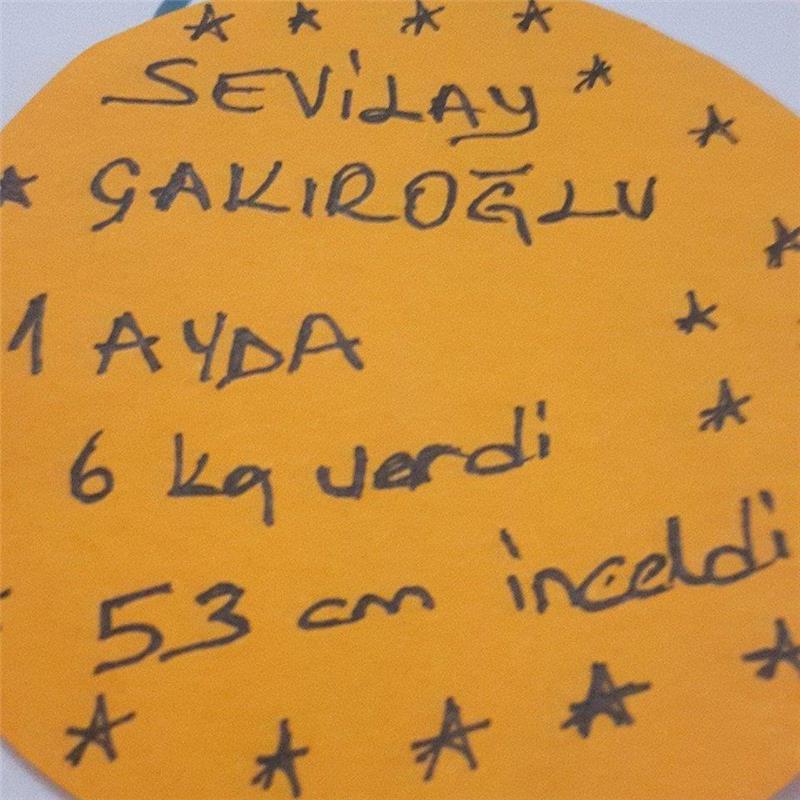 SEVİLAY
ÇAKIROĞLU
1 AYDA
6 kg verdi
53 cm inceldi